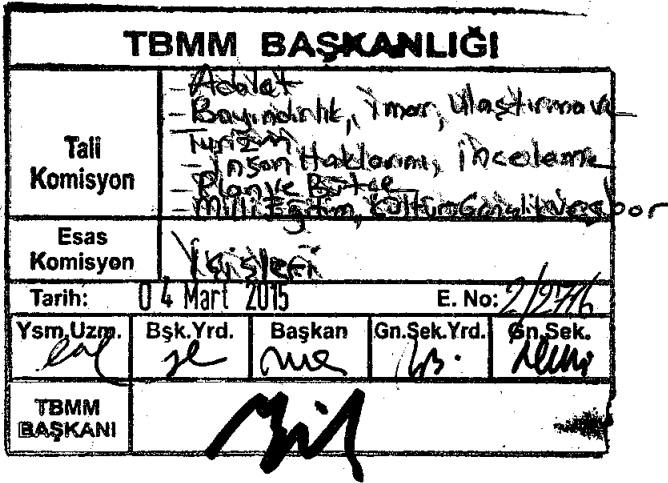 TBMM BAŞKANLIĞI
Tali Komisyon
- Adalet
- Bayındırlık, İmar, Ulaştırma ve
Turizm
- İnsan Haklarını İnceleme
- Plan ve Bütçe
- Milli Eğitim, Kültür Gençlik ve Spor
Esas Komisyon
İçişleri
Tarih: 04 Mart 2015 E. No: 2/2776
Ysm.Uzm. Bşk.Yrd. Başkan Gn.Sek.Yrd. Gn.Sek.
TBMM
BAŞKANI